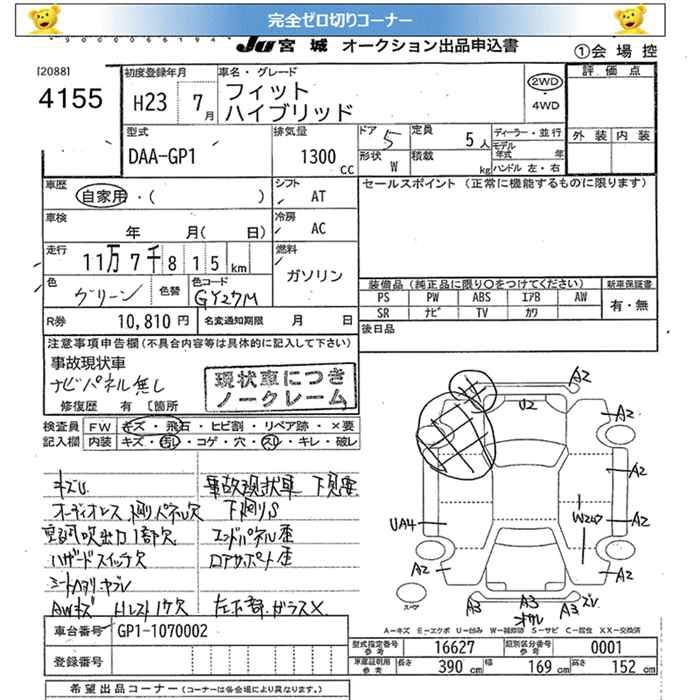 完全ゼロ切りコーナー
JU 宮城 オークション出品申込書
①会場控
[2088]
4155
初度登録年月
H23 7月
車名・グレード
フィット
ハイブリッド
2WD
4WD
評価点
外装 内装
型式
DAA-GP1
排気量
1300 CC
ドア 5
定員 5人
形状 W
積載 kg
ディーラー・並行
モデル年式 年
ハンドル 左・右
車歴
自家用・( )
シフト
AT
セールスポイント (正常に機能するものに限ります)
車検
年 月( 日)
冷房
AC
走行
11万7千815km
燃料
ガソリン
色
グリーン
色替
色コード
GY27M
装備品 (純正品に限り○をつけてください)
新車保証書
PS PW ABS エアB AW
SR ナビ TV カワ
有・無
R券 10,810円
名変通知期限 月 日
後日品
注意事項申告欄 (不具合内容等は具体的に記入して下さい)
事故現状車
ナビパネル無し
現状車につき
ノークレーム
修復歴 有 [箇所
検査員
記入欄
FW キズ・飛石・ヒビ割・リペア跡・×要
内装 キズ・汚れ・コゲ・穴・スリ・キレ・破レ
キズU
事故現状車 下見要
オーディオレス、横リパネル欠
下廻りS
空調吹出力1部欠
エンドパネル歪
ハザードスイッチ欠
ロアサポート歪
シートヘタリ・ヤブレ
AWキズ
左下部ガラス×
A2
U2
A2
A2
UA4
W2
A2
A2
A2
A3
A3
A3
スペア
A-キズ E-エクボ U-凹み W-補修跡 S-サビ C-腐食 XX-交換済
車台番号
GP1-1070002
登録番号
型式指定番号 参考
16627
類別区分番号 参考
0001
車庫証明用 参考
長さ 390cm
幅 169cm
高さ 152cm
希望出品コーナー (コーナーは各会場により異なります。)